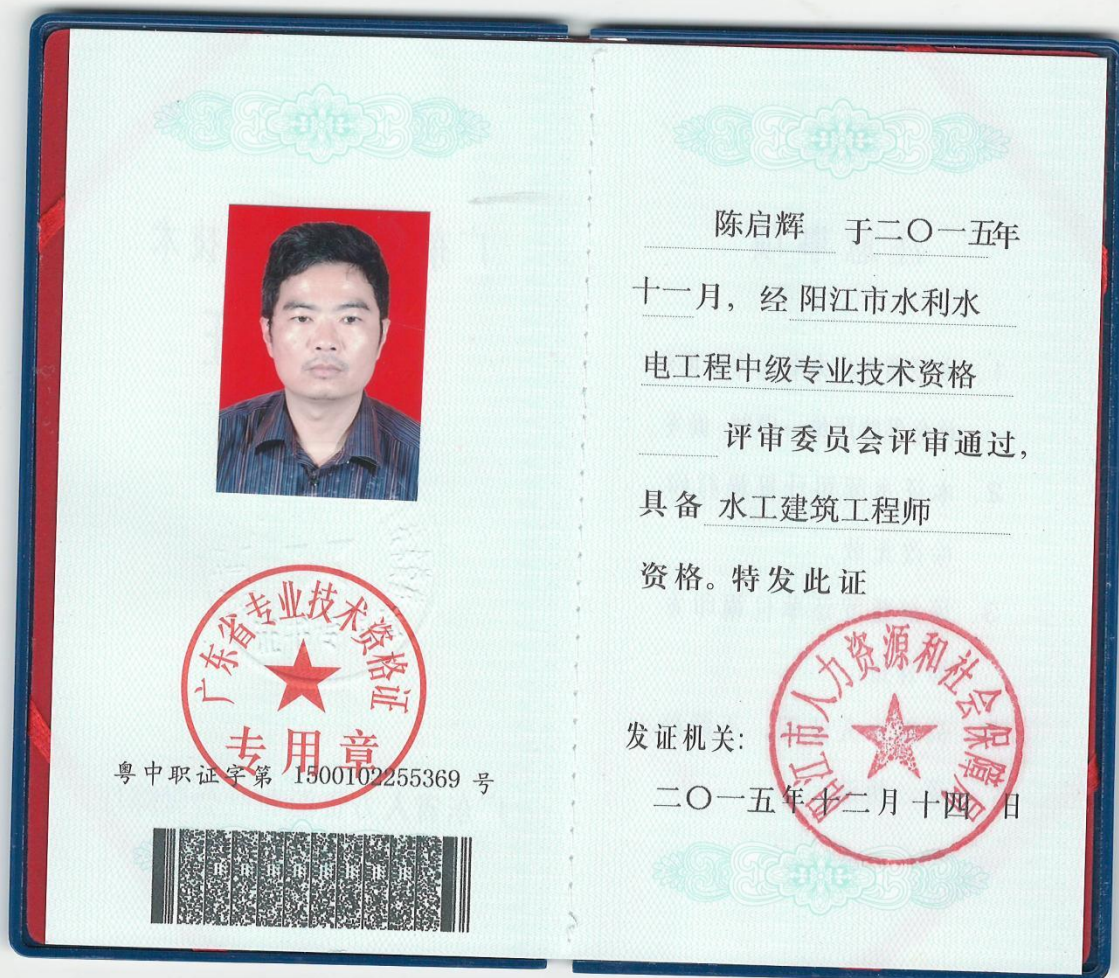 广东省专业技术资格证
专用章
粤中职证字第 1500102255369 号
陈启辉 于二〇一五年
十一月, 经 阳江市水利水
电工程中级专业技术资格
评审委员会评审通过,
具备 水工建筑工程师
资格。特发此证
阳江市人力资源和社会保障局
发证机关:
二〇一五年十二月十四日